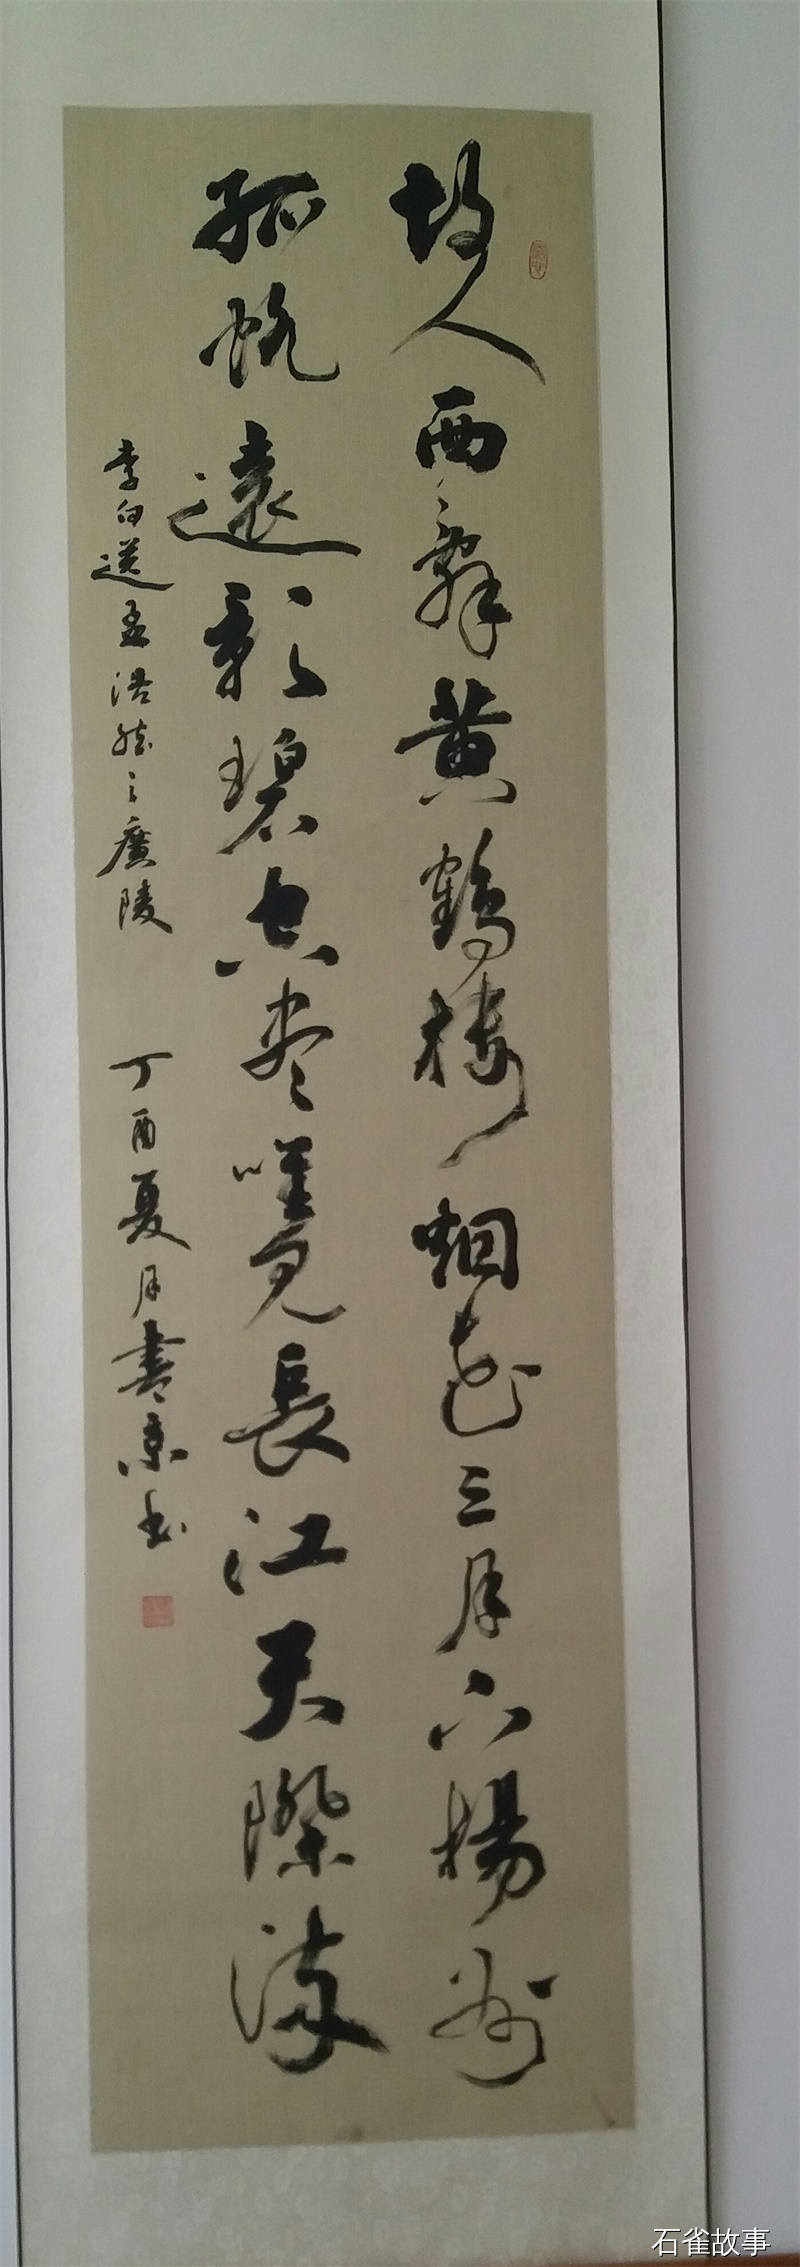 故人西辞黄鹤楼烟花三月下揚州
孤帆遠影碧空尽唯見長江天際流
李白送孟浩然之廣陵 丁酉夏月書京书
石雀故事